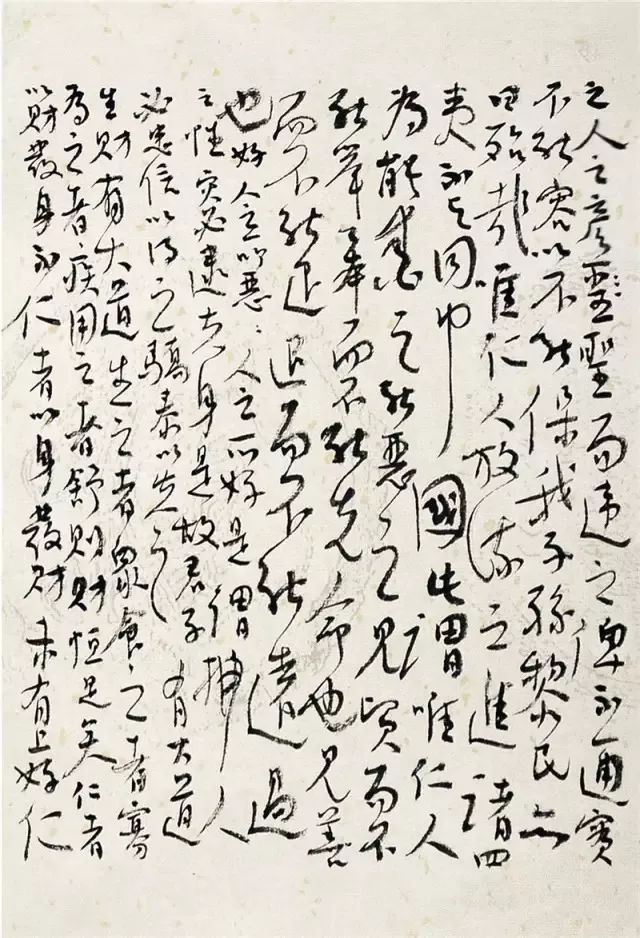 之人之彥聖聖而違之俾不通實
不能容以不能保我子孫黎民亦
曰殆哉唯仁人放流之進諸四
夷不與同中國此謂唯仁人
為能愛之能惡之見賢而不
能舉舉而不能先命也見善
而不能退退而不能遠過
也好人之所惡〻人之所好是謂拂人
之性災必逮夫身是故君子有大道
必忠信以得之驕泰以失之
生財有大道生之者眾食之者寡
為之者疾用之者舒則財恒足矣仁者
以財發身不仁者以身發財未有上好仁